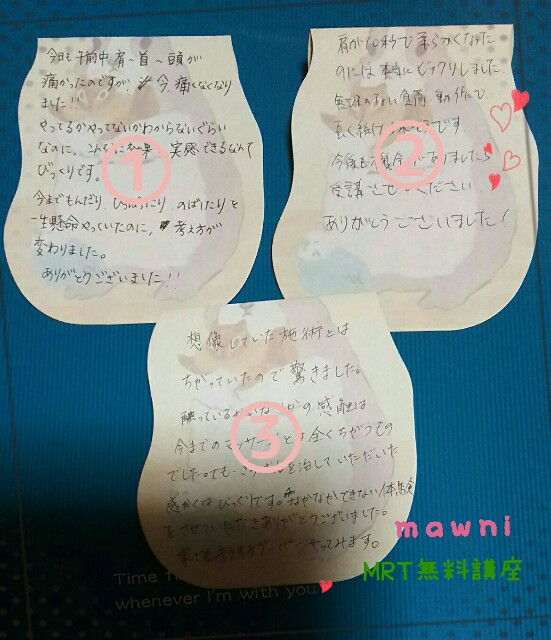 今日も午前中 肩~首~頭が
痛かったのですが、今、痛くなくなり
ました!!
やってるかやってないかわからないぐらい
なのに、こんなに効果 実感できるなんて
びっくりです。
今までもんだり、ひっぱったり、のばしたりと
一生懸命やっていたのに、考え方が
変わりました。
ありがとうございました!!
①
肩が10秒で柔らかくなった
のには本当にビックリしました
無理のない 動作にで
長く続け そうです
今後も 機会 ありましたら
受講させ ください
ありがとうございました!
②
想像していた施術とは
ちがっていたので驚きました。
触っている の感触は
今までのマッサージとは全くちがうもの
でした。でも、 を治していただいた
感かくはびっくりです。なかなかできない体験
をさせていただきありがとうございました。
やってみます。
③
mawni
MRT無料講座
Time
whenever I'm with you